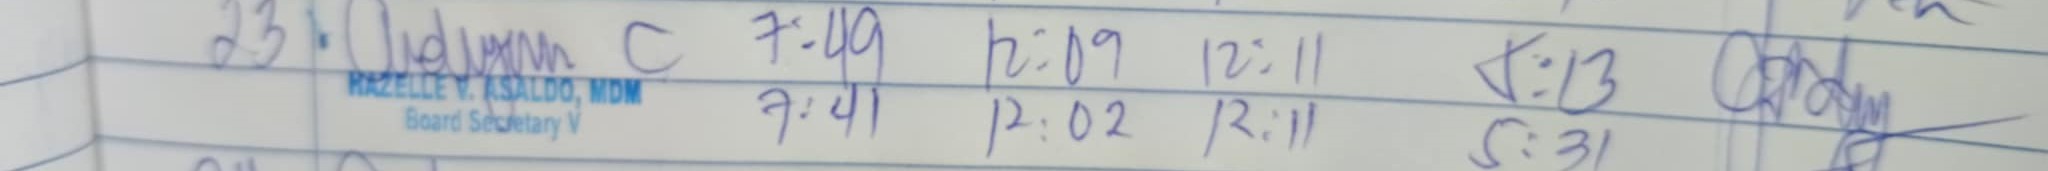 23. C 7:49 12:09 12:11 5:13
HAZELLE V. ASALDO, MDM 7:41 12:02 12:11 5:31
Board Secretary V